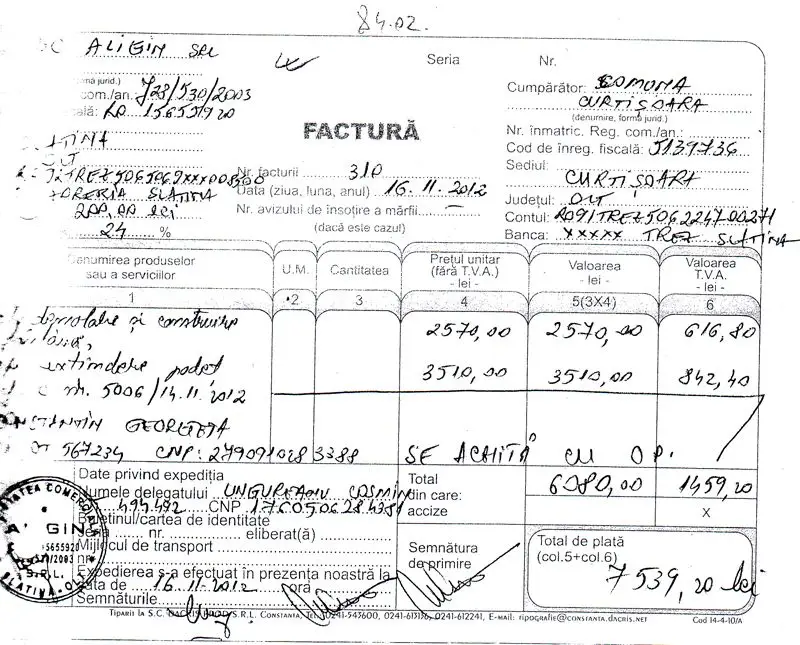 84.02.
SC ALIGIN SRL
Seria
Nr.
com./an. J28/530/2003
RO 15655920
SLATINA
OLT
TREZ5065069XXX00
SLATINA
200,00 lei
24 %
FACTURĂ
Nr. facturii 310
Data (ziua, luna, anul) 16.11.2012
Nr. avizului de însoțire a mărfii —
(dacă este cazul)
Cumpărător: COMUNA
CURTIȘOARA
(denumire, formă jurid.)
Nr. înmatric. Reg. com./an.:
Cod de înreg. fiscală: 5139736
Sediul:
CURTIȘOARA
Județul: OLT
Contul: RO91TREZ506224700271
Banca: XXXXX TREZ SLATINA
Denumirea produselor sau a serviciilor
U.M.
Cantitatea
Prețul unitar (fără T.V.A.) - lei -
Valoarea - lei -
Valoarea T.V.A. - lei -
1 2 3 4 5(3X4) 6
demolare și construire 2570,00 2570,00 616,80
extindere podeț 3510,00 3510,00 842,40
nr. 5006/14.11.2012
CONSTANTIN GEORGETA
OT 567234 CNP: 2790910283388 SE ACHITĂ CU OP.
Date privind expediția
Numele delegatului UNGUREANU COSMIN
494492 CNP 1760506284381
Buletinul/cartea de identitate
Seria nr. eliberat(ă)
Mijlocul de transport
nr.
Expedierea s-a efectuat în prezența noastră la
data de 16.11.2012 ora
Semnăturile
Semnătura de primire
Total 6080,00 1459,20
din care:
accize X
Total de plată
(col.5+col.6)
7539,20 lei
Tiparit la S.C. DACRIS PROD S.R.L. CONSTANTA, Tel. 0241-543600, 0241-613136, 0241-612241, E-mail: tipografie@constanta.dacris.net
Cod 14-4-10/A